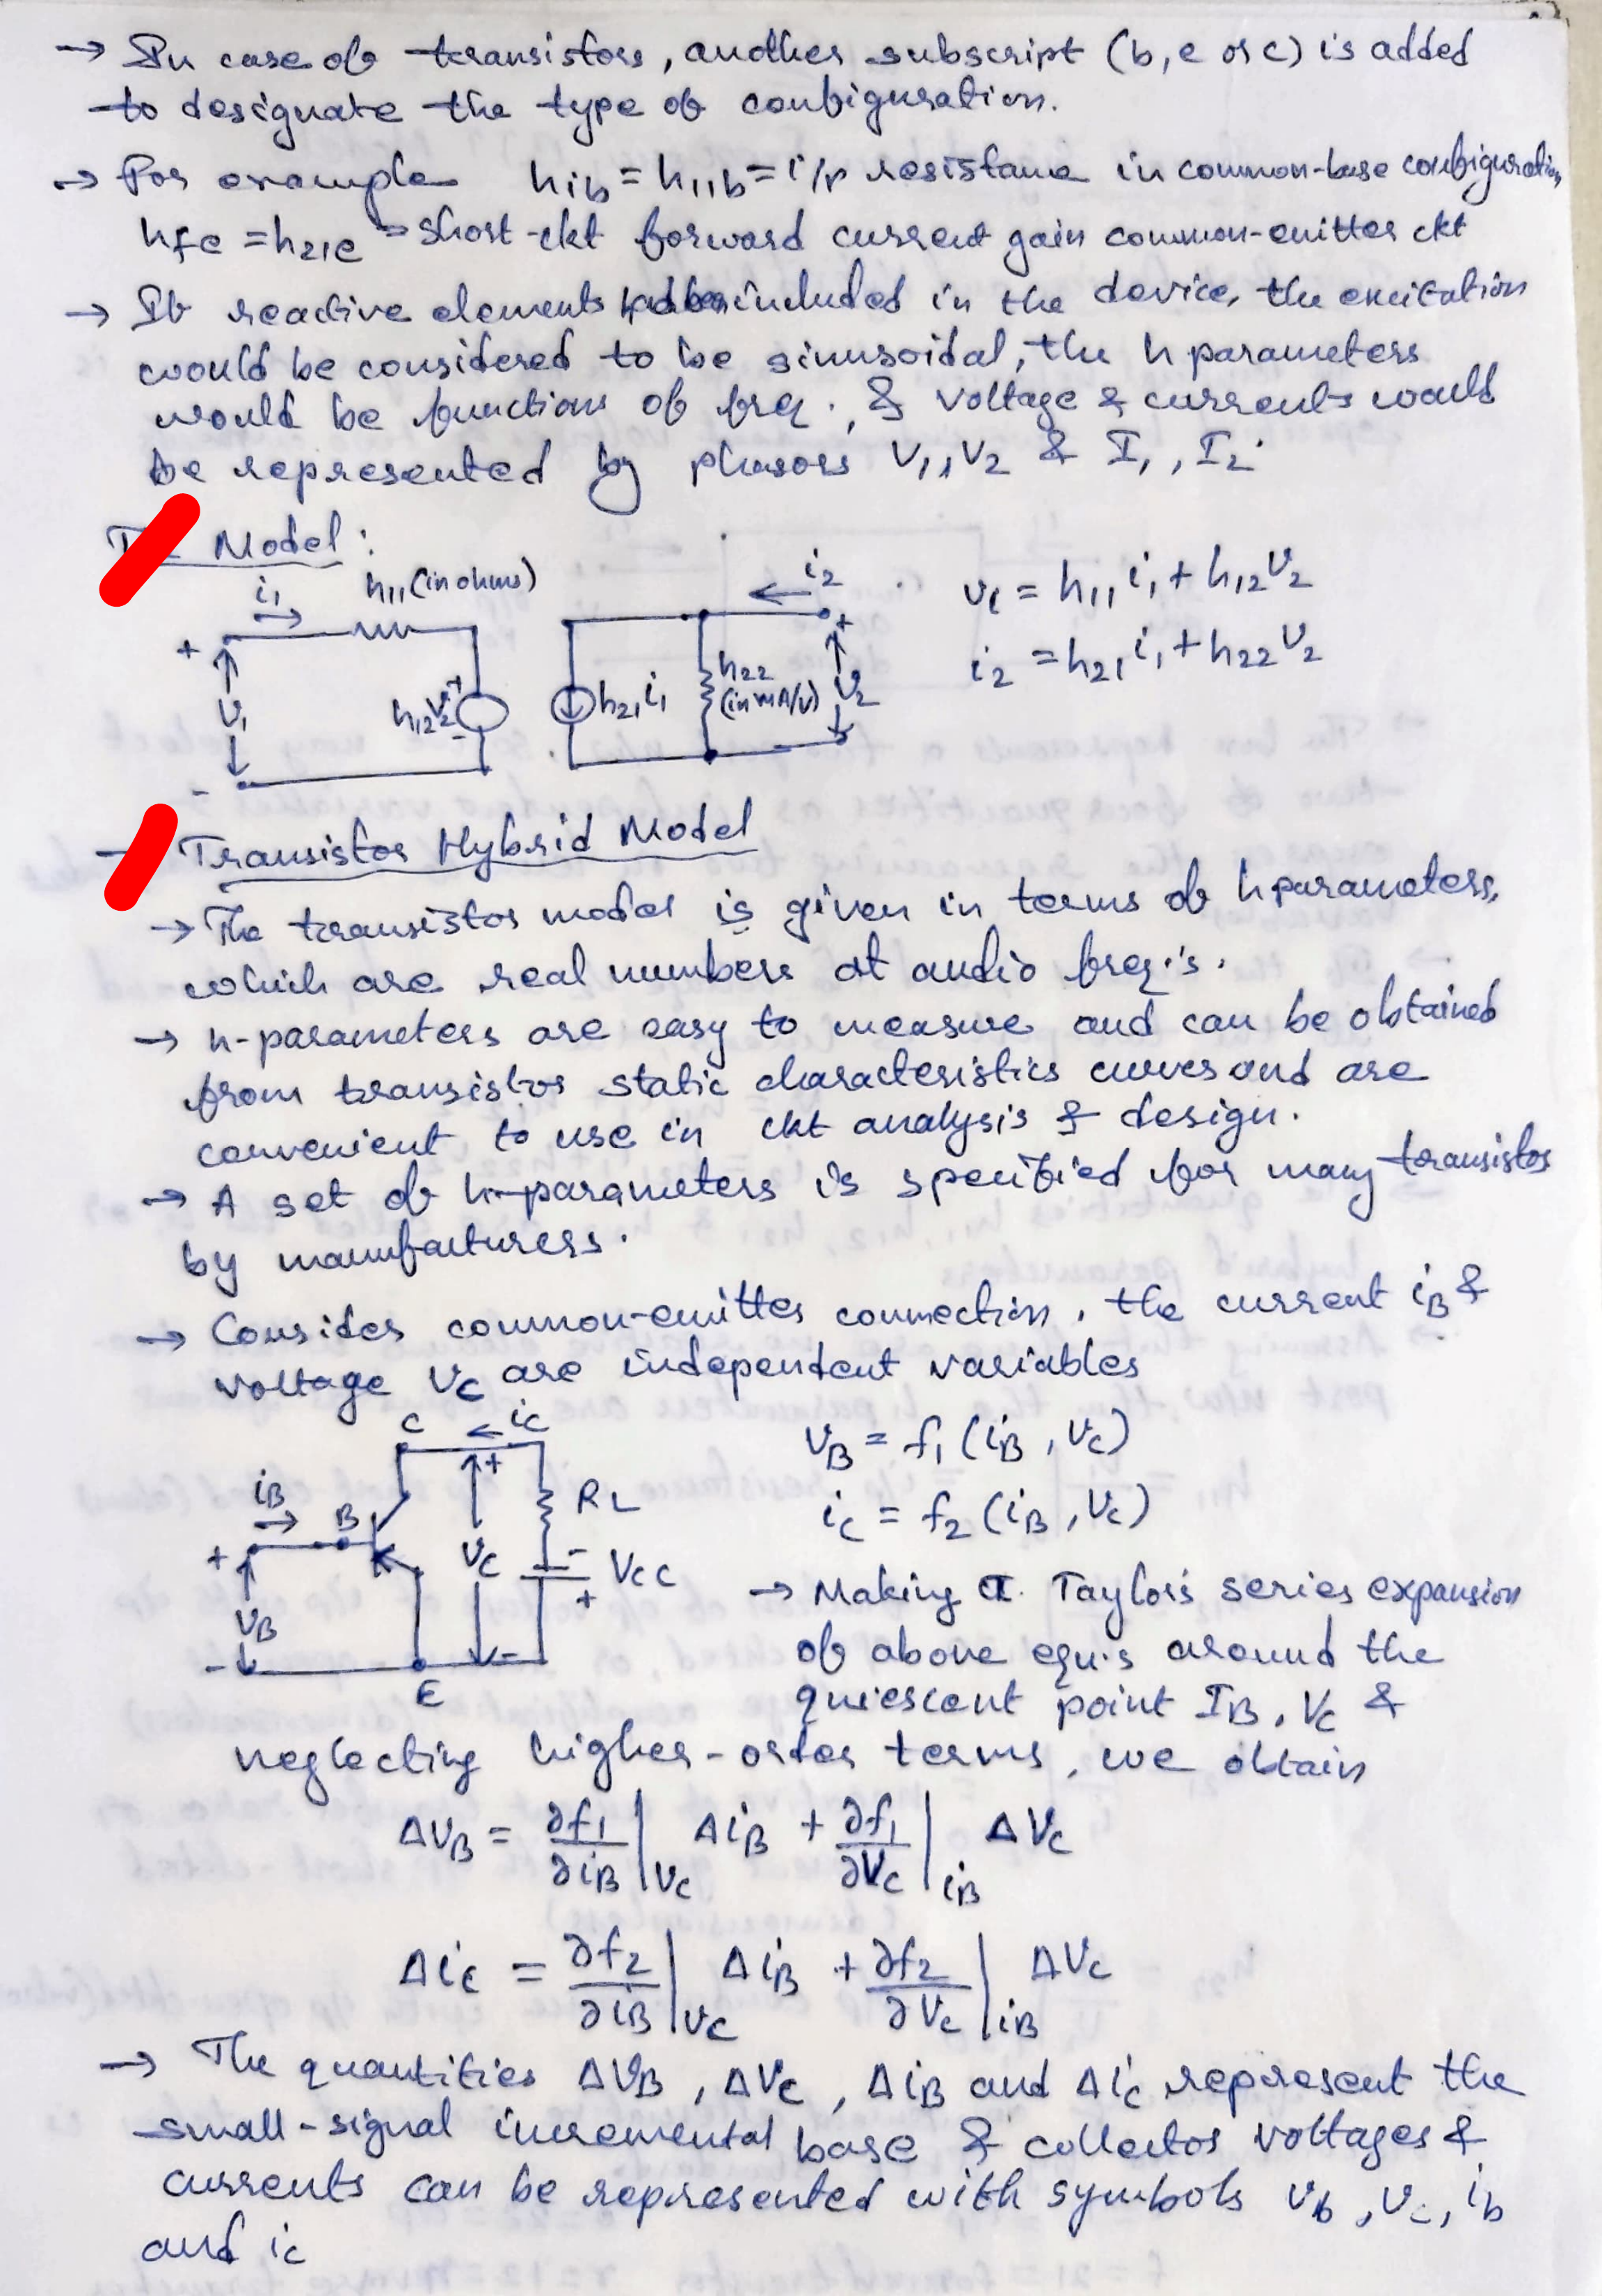 → In case of transistors, another subscript (b, e or c) is added
to designate the type of configuration.
→ For example hib = h11b = i/p resistance in common-base configuration,
hfe = h21e = short-ckt forward current gain common-emitter ckt
→ If reactive elements had been included in the device, the excitation
would be considered to be sinusoidal, the h parameters
would be functions of freq., & voltage & currents would
be represented by phasors V1, V2 & I1, I2.
Model :
i1 → h11 (in ohms)
+ v1 -
h12v2 + -
h21i1
h22 (in mA/V)
← i2
+ v2
v1 = h11 i1 + h12 v2
i2 = h21 i1 + h22 v2
Transistor Hybrid Model
→ The transistor model is given in terms of h parameters,
which are real numbers at audio freq.'s.
→ h-parameters are easy to measure and can be obtained
from transistor static characteristics curves and are
convenient to use in ckt analysis & design.
→ A set of h-parameters is specified for many transistos
by manufacturers.
→ Consider common-emitter connection, the current iB &
voltage vC are independent variables
C ← iC
iB → B
+ vB -
+ vC -
RL
- VCC +
E
vB = f1 (iB, vC)
iC = f2 (iB, vC)
→ Making a Taylor's series expansion
of above equ's around the
quiescent point IB, VC &
neglecting higher-order terms, we obtain
ΔvB = ∂f1/∂iB |vC ΔiB + ∂f1/∂vC |iB ΔvC
ΔiC = ∂f2/∂iB |vC ΔiB + ∂f2/∂vC |iB ΔvC
→ The quantities ΔvB, ΔvC, ΔiB and ΔiC represent the
small-signal incremental base & collector voltages &
currents can be represented with symbols vb, vc, ib
and ic